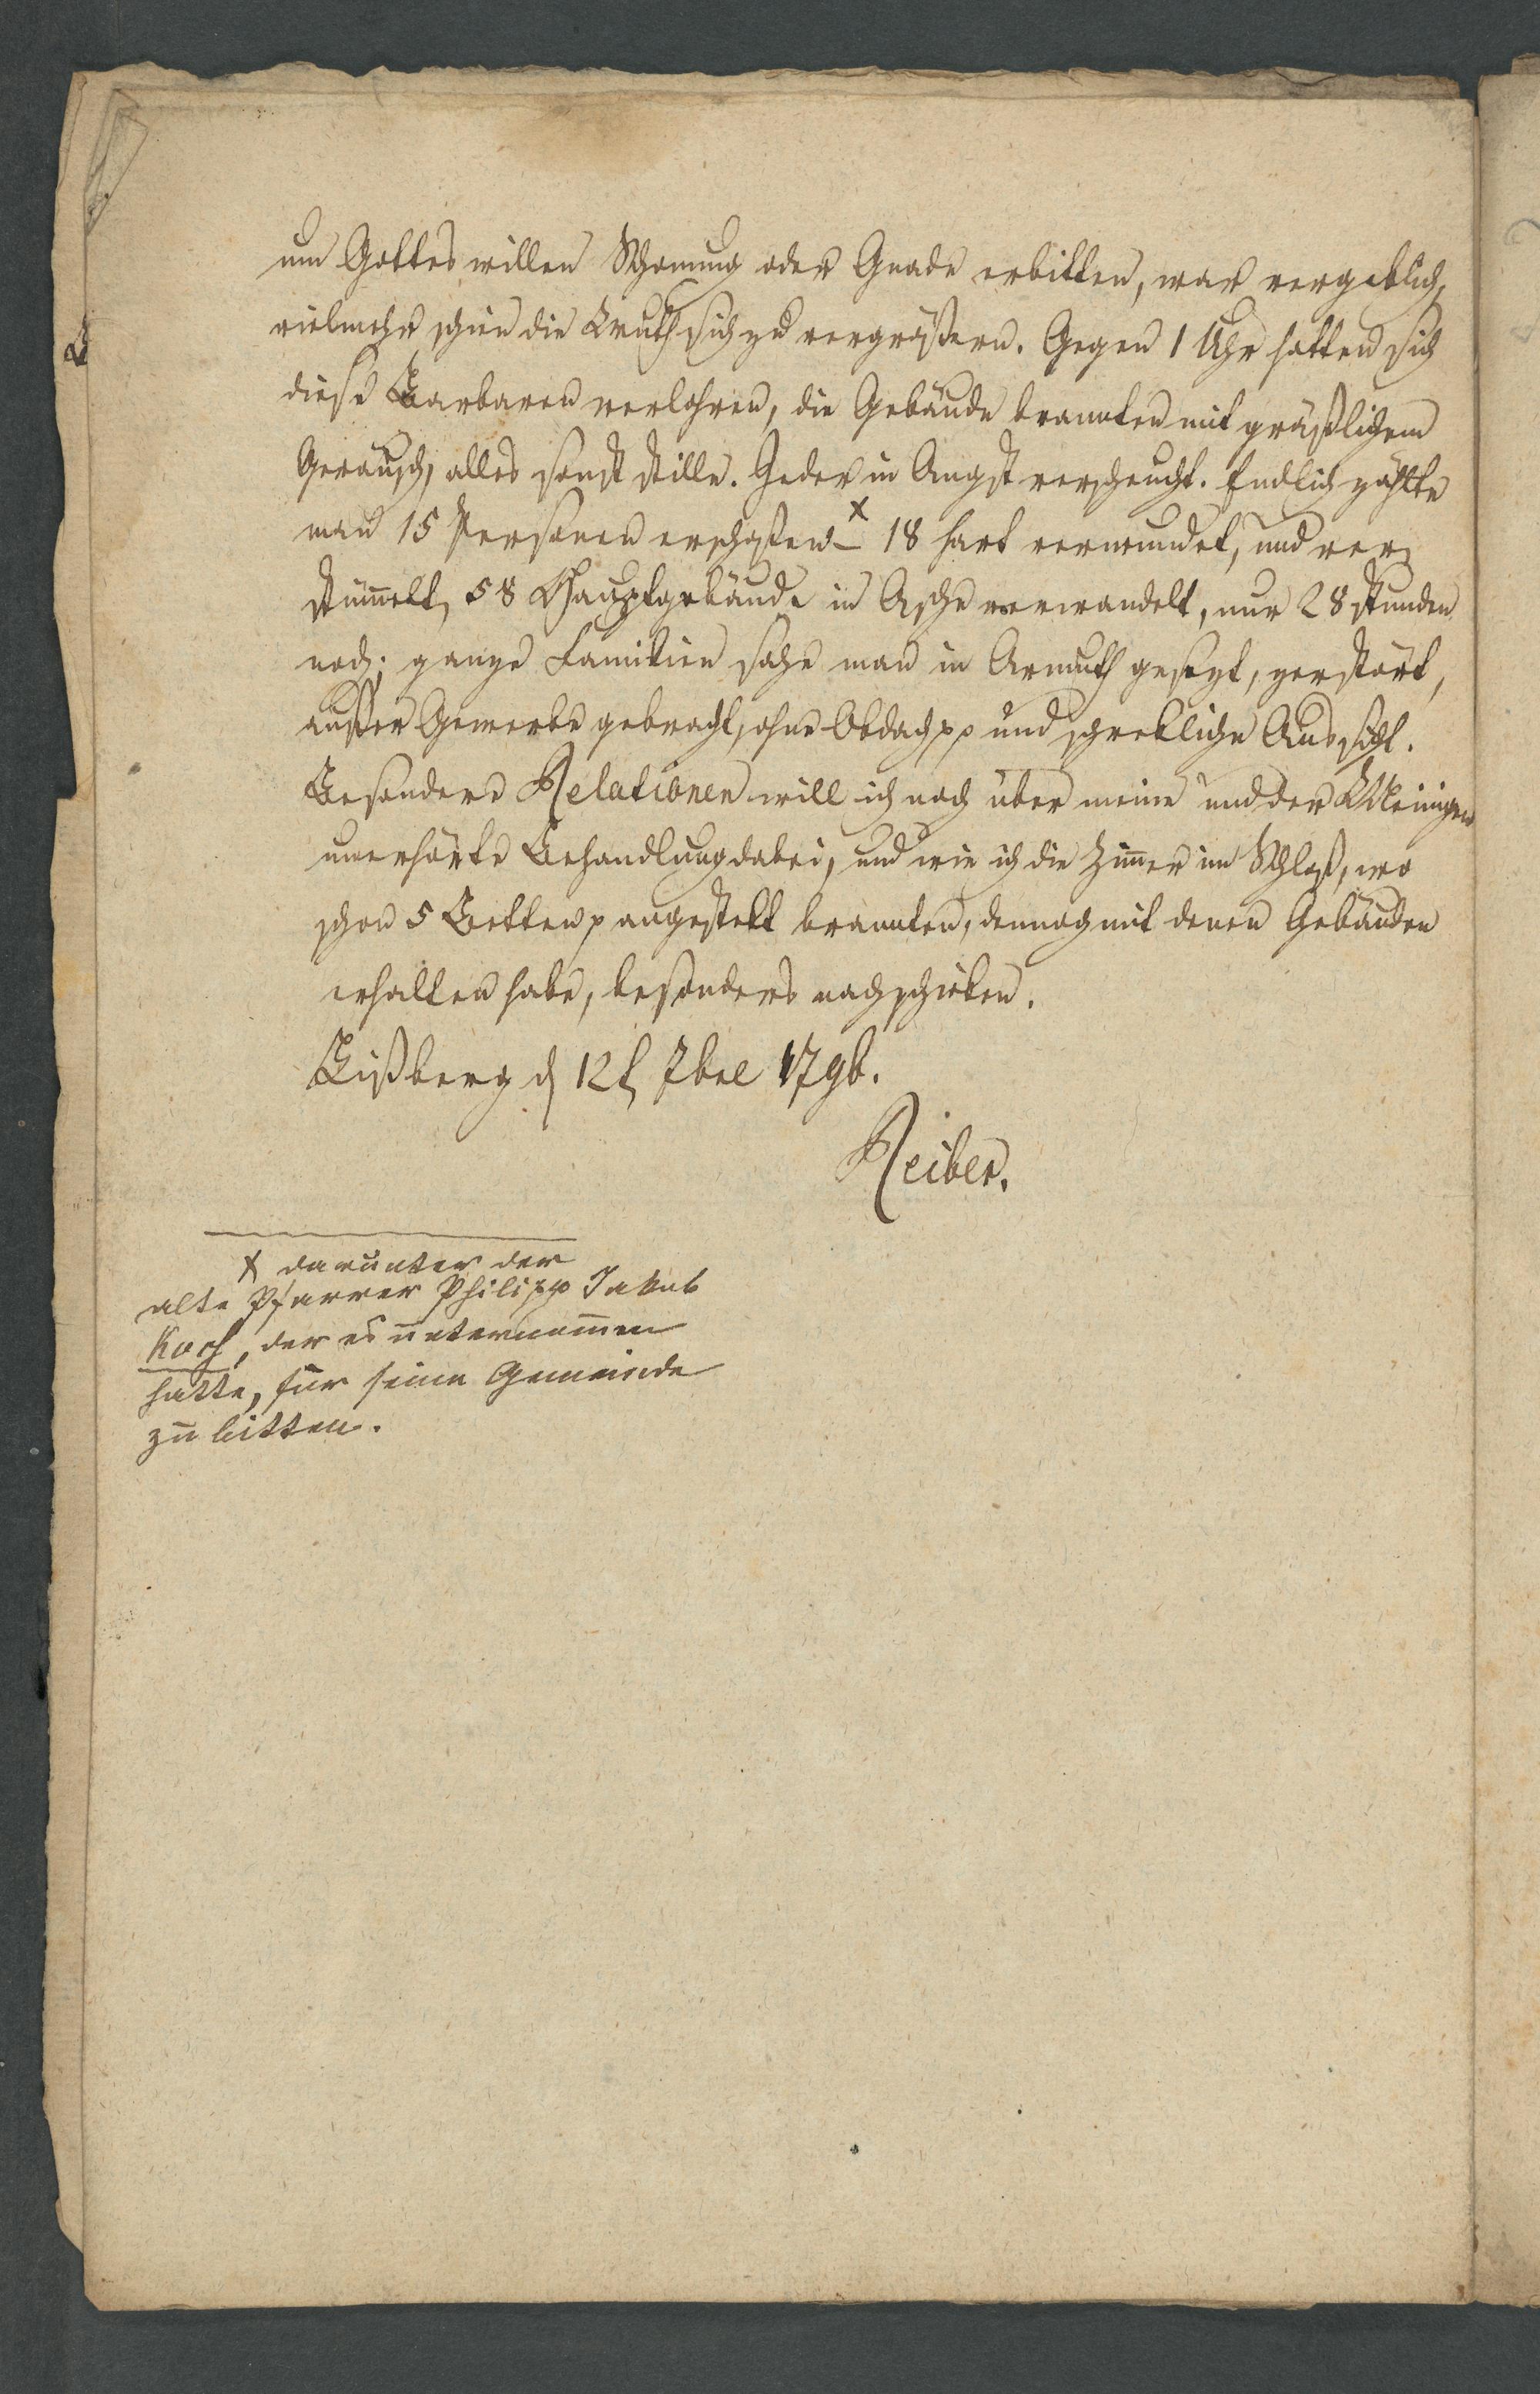 um Gottes willen Schonung oder Gnade erbitten, war vergeblich,
vielmehr schien die Wuth sich zu vergrößern. Gegen 1 Uhr hatten sich
diese Barbaren verlohren, die Gebäude brannten mit gräßlichem
Geräusch, alles sonst stille. Jeder in Angst verscheucht. Endlich zählte
man 15 Personen erschoßen x – 18 hart verwundet, und ver-
stümmelt, 58 Hauptgebäude in Asche verwandelt, nur 28 stunden
noch; ganze Familien sahe man in Armuth gesezt, zerstört,
ausser Gewerbe gebracht, ohne Obdach pp und schrekliche Aussicht.
Besondere Relationen will ich noch über meine und der Meinigen
unerhörte Behandlung dabei, und wie ich die Zimmer im Schloß, wo
schon 5 Betten p angestekt brannten, dennoch mit denen Gebäuden
erhalten habe, besonders nachschicken.
Lißberg d 12t 7bre 1796.
Reiber.
x darunter der
alte Pfarrer Philipp Jakob
Koch, der es unternommen
hatte, für seine Gemeinde
zu bitten.